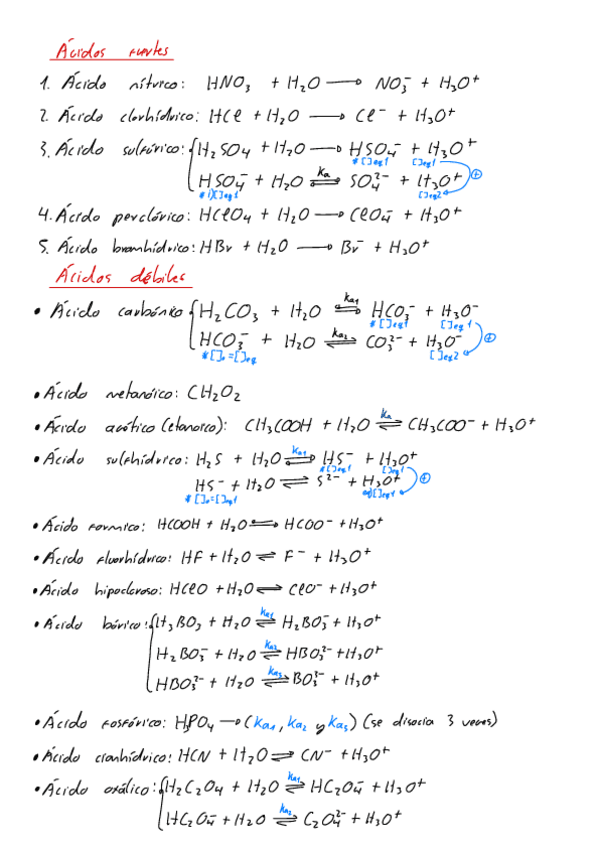 Ácidos fuertes
1. Ácido nítrico: HNO₃ + H₂O ⟶ NO₃⁻ + H₃O⁺
2. Ácido clorhídrico: HCl + H₂O ⟶ Cl⁻ + H₃O⁺
3. Ácido sulfúrico: { H₂SO₄ + H₂O ⟶ HSO₄⁻ + H₃O⁺
* [ ]eq1 [ ]eq1
HSO₄⁻ + H₂O ⇌ Ka SO₄²⁻ + H₃O⁺ ⊕
[ ]eq2
4. Ácido perclórico: HClO₄ + H₂O ⟶ ClO₄⁻ + H₃O⁺
5. Ácido bromhídrico: HBr + H₂O ⟶ Br⁻ + H₃O⁺
Ácidos débiles
• Ácido carbónico { H₂CO₃ + H₂O ⇌ Ka1 HCO₃⁻ + H₃O⁻
* [ ]eq1 [ ]eq1
HCO₃⁻ + H₂O ⇌ Ka2 CO₃²⁻ + H₃O⁻ ⊕
* [ ]₀=[ ]eq [ ]eq2
• Ácido metanóico: CH₂O₂
• Ácido acético (etanoico): CH₃COOH + H₂O ⇌ Ka CH₃COO⁻ + H₃O⁺
• Ácido sulfhídrico: H₂S + H₂O ⇌ Ka1 HS⁻ + H₃O⁺
* [ ]eq1 [ ]eq1
HS⁻ + H₂O ⇌ S²⁻ + H₃O⁺ ⊕
* [ ]₀=[ ]eq1
• Ácido formico: HCOOH + H₂O ⇌ HCOO⁻ + H₃O⁺
• Ácido fluorhídrico: HF + H₂O ⇌ F⁻ + H₃O⁺
• Ácido hipocloroso: HClO + H₂O ⇌ ClO⁻ + H₃O⁺
• Ácido bórico: { H₃BO₃ + H₂O ⇌ Ka1 H₂BO₃⁻ + H₃O⁺
H₂BO₃⁻ + H₂O ⇌ Ka2 HBO₃²⁻ + H₃O⁺
HBO₃²⁻ + H₂O ⇌ Ka3 BO₃³⁻ + H₃O⁺
• Ácido fosfórico: H₃PO₄ ⟶ (Ka1, Ka2 y Ka3) (se disocia 3 veces)
• Ácido cianhídrico: HCN + H₂O ⇌ CN⁻ + H₃O⁺
• Ácido oxálico: { H₂C₂O₄ + H₂O ⇌ Ka1 HC₂O₄⁻ + H₃O⁺
HC₂O₄⁻ + H₂O ⇌ Ka2 C₂O₄²⁻ + H₃O⁺